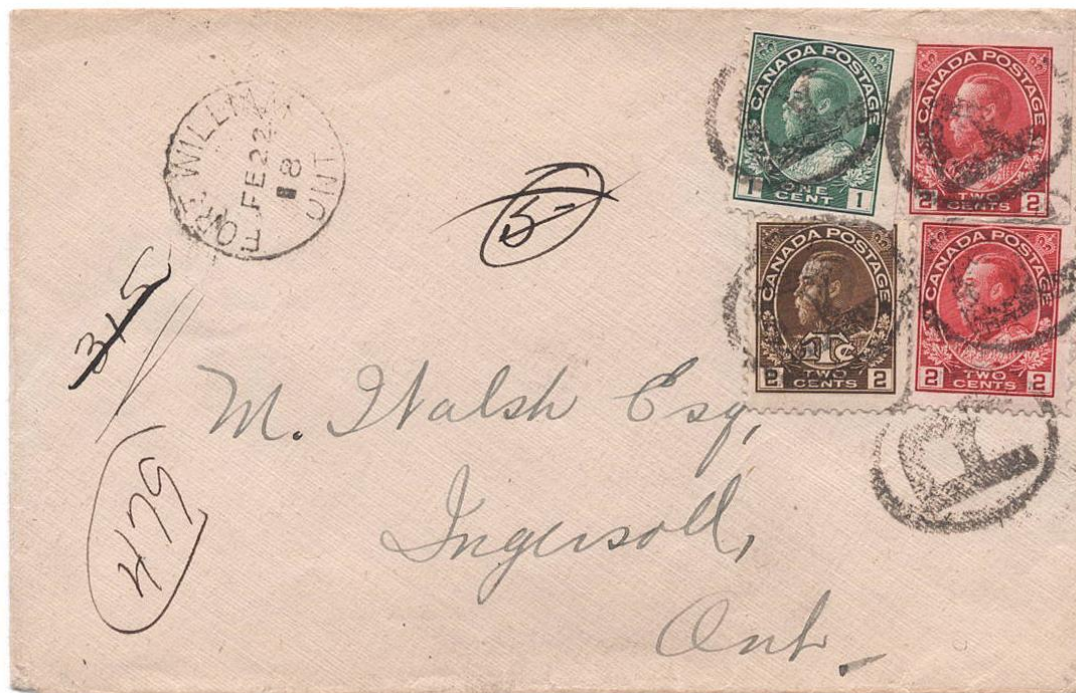 FORT WILLIAM
FE 22
18
ONT
CANADA POSTAGE
1 ONE CENT 1
CANADA POSTAGE
2 TWO CENTS 2
CANADA POSTAGE
1Tc
2 TWO CENTS 2
CANADA POSTAGE
2 TWO CENTS 2
R
5-
315
479
M. Walsh Esq,
Ingersoll,
Ont.